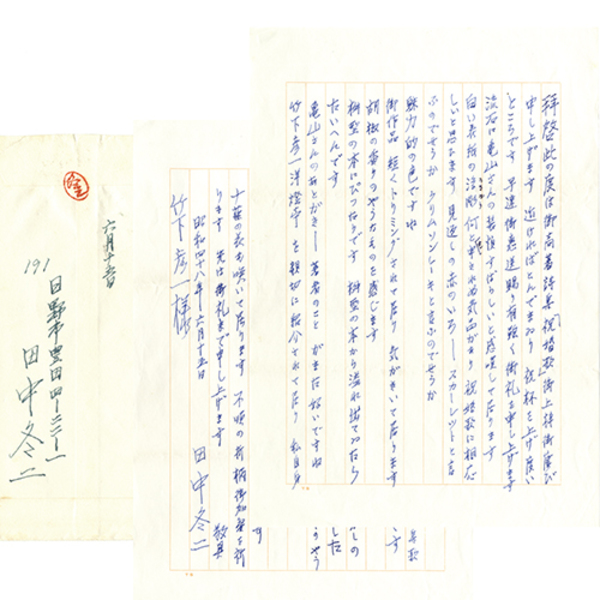 拝啓 此の度は御高著詩集「祝婚歌」御上梓御慶び
申し上げます 近ければとんでまゐり 祝杯を上げ度い
ところです 早速御恵送賜り有難く御礼を申し上げます
流石に亀山さんの装幀すばらしいと感嘆して居ります
白い表紙の 何とも云へぬ気品があり 祝婚歌に相応
しいと思ひます 見返しの赤のいろ― スカーレットと言
ふのでせうか クリムソンレーキと言ふのでせうか
魅力的の色ですね
御作品 短くトリミングされて居り 気がきいて居ります
胡椒の香りのやうなものを感じます
掛塑の本にぴつたりです 掛塑の本から溢れ
たいへんです
亀山さんのあとがき― 著者のこと がまた好いですね
竹下彦一 洋燈亭 を親切に紹介されて居り 私自身
す
十葉の表も咲いて居ります 不順の折柄御加餐を祈
ります 先は御礼まで申し上げます 敬具
昭和四八年六月十五日 田中冬二
竹下彦一様
六月十五日
191
日野市豊田四―二三―一
田中冬二